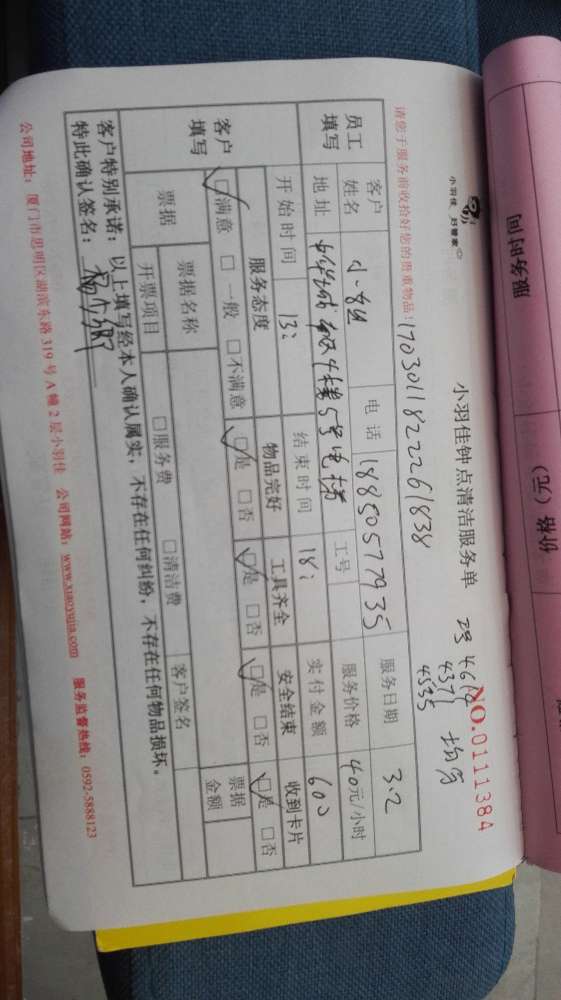 服务时间
价格（元）
小羽佳 好管家
小羽佳钟点清洁服务单
NO.0111384
4371
4535
请您于服务前收拾好您的贵重物品！
17030118222261838
员工填写
客户姓名
电话
18850577935
服务日期
3.2
地址
5号电梯
工号
服务价格
40元/小时
开始时间
13:
结束时间
18:
实付金额
600
客户填写
服务态度
物品完好
工具齐全
安全结束
收到卡片
□满意 □一般 □不满意
□是 □否
□是 □否
□是 □否
□是 □否
票据
票据名称
客户签名
票据金额
开票项目
□服务费
□清洁费
客户特别承诺：以上填写经本人确认属实，不存在任何纠纷，不存在任何物品损坏。
特此确认签名：
公司地址：厦门市思明区湖滨东路319号A幢2层小羽佳 公司网站：www.xiaoyujia.com 服务监督热线：0592-5888123